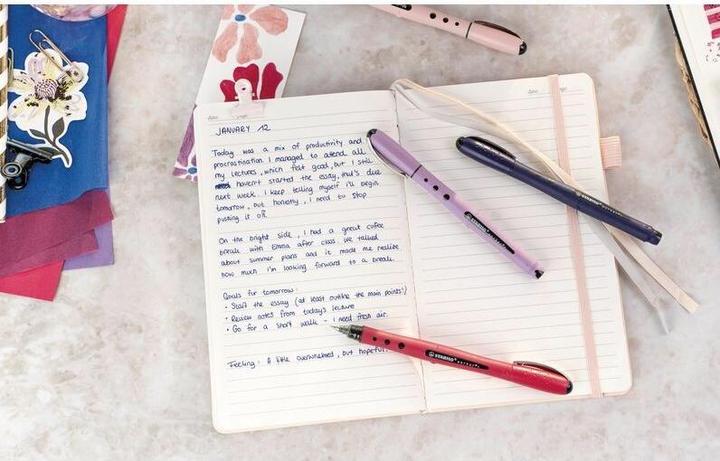 JANUARY 12
Today was a mix of productivity and
procrastination. I managed to attend all
my lectures, which felt good, but I still
haven't started the essay, that's due
next week. I keep telling myself I'll begin
tomorrow, but honestly, I need to stop
putting it off.
On the bright side, I had a great coffee
break with Emma after class. We talked
about summer plans and it made me realize
how much I'm looking forward to a break.
Goals for tomorrow:
• Start the essay (at least outline the main points!)
• Review notes from today's lecture
• Go for a short walk - I need fresh air.
Feeling: A little overwhelmed, but hopeful.
STABILO
STABILO
STABILO